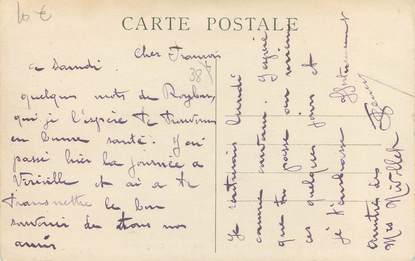 10 €
CARTE POSTALE
Cher François
38
ce Samedi.
quelques mots de Roybon,
qui je l'espère te trouveront
en bonne santé. J'ai
passé hier la journée à
Viriville et ai à te
transmettre le bon
souvenir de tous nos
amis
Je continuerai lundi
comme J'espère
que tu passe au mieux
ces quelques jours et
je t'embrasse affectueusement
Amitiés des